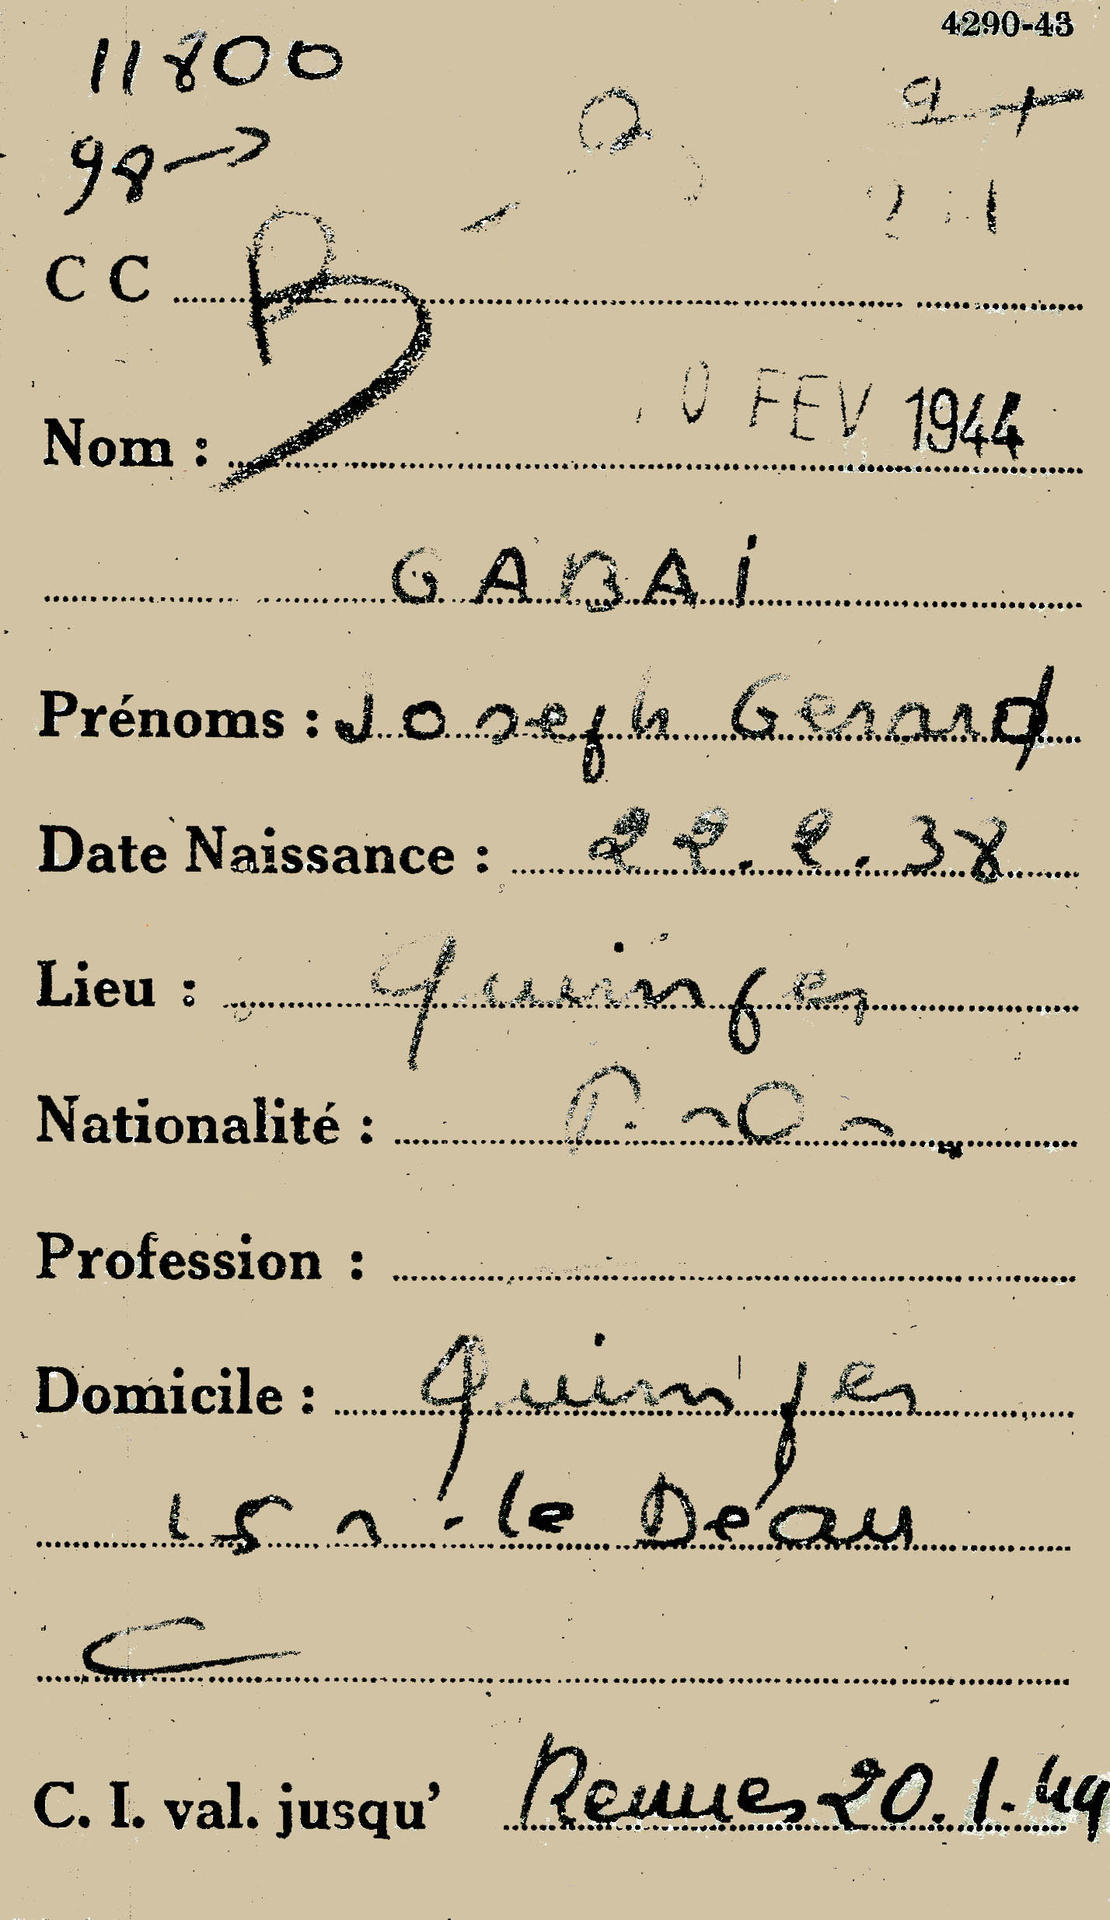 4290-43
11800
98
CC B
0 FEV 1944
Nom :
GABAI
Prénoms : Joseph Gerard
Date Naissance : 22.2.38
Lieu : Quimper
Nationalité :
Profession :
Domicile : Quimper
15 r. le Déan
C
C. I. val. jusqu' Rennes 20.1.44